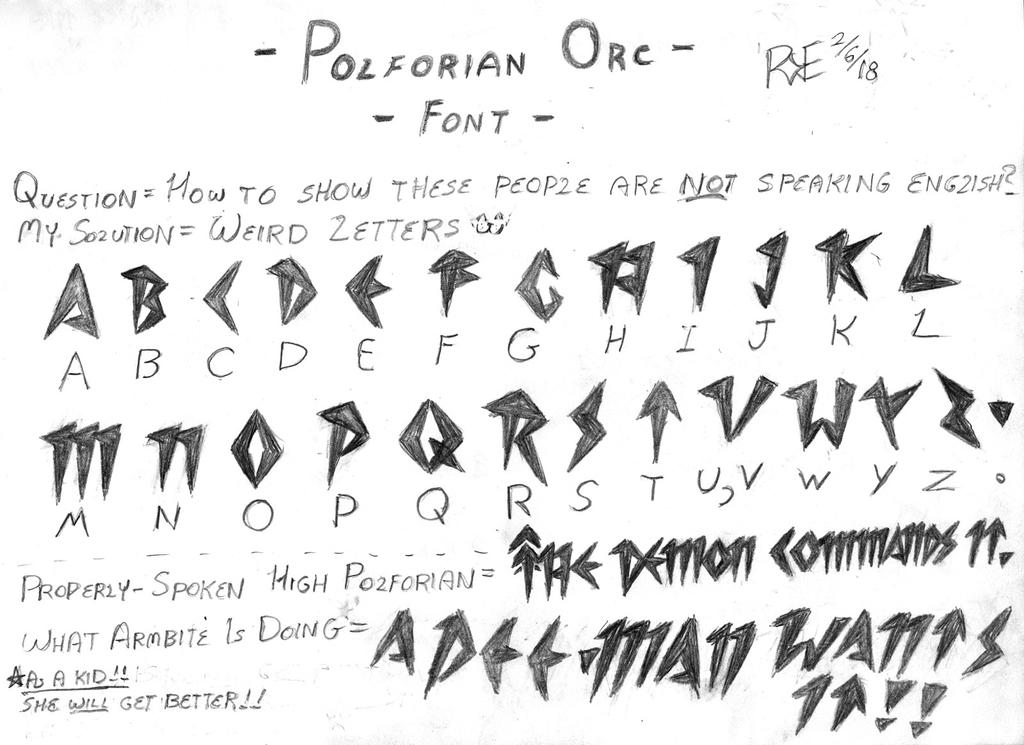 - POLFORIAN ORC -
RSE 2/6/18
- FONT -
QUESTION= HOW TO SHOW THESE PEOPLE ARE NOT SPEAKING ENGLISH?
MY SOLUTION= WEIRD LETTERS
A B C D E F G H I J K L
A B C D E F G H I J K L
M N O P Q R S T V W Y Z .
M N O P Q R S T U,V W Y Z .
PROPERLY-SPOKEN HIGH POLFORIAN= THE DEMON COMMANDS IT.
WHAT ARMBITE IS DOING= A DEE-MAN WANTS
IT!!
★AS A KID!!
SHE WILL GET BETTER!!